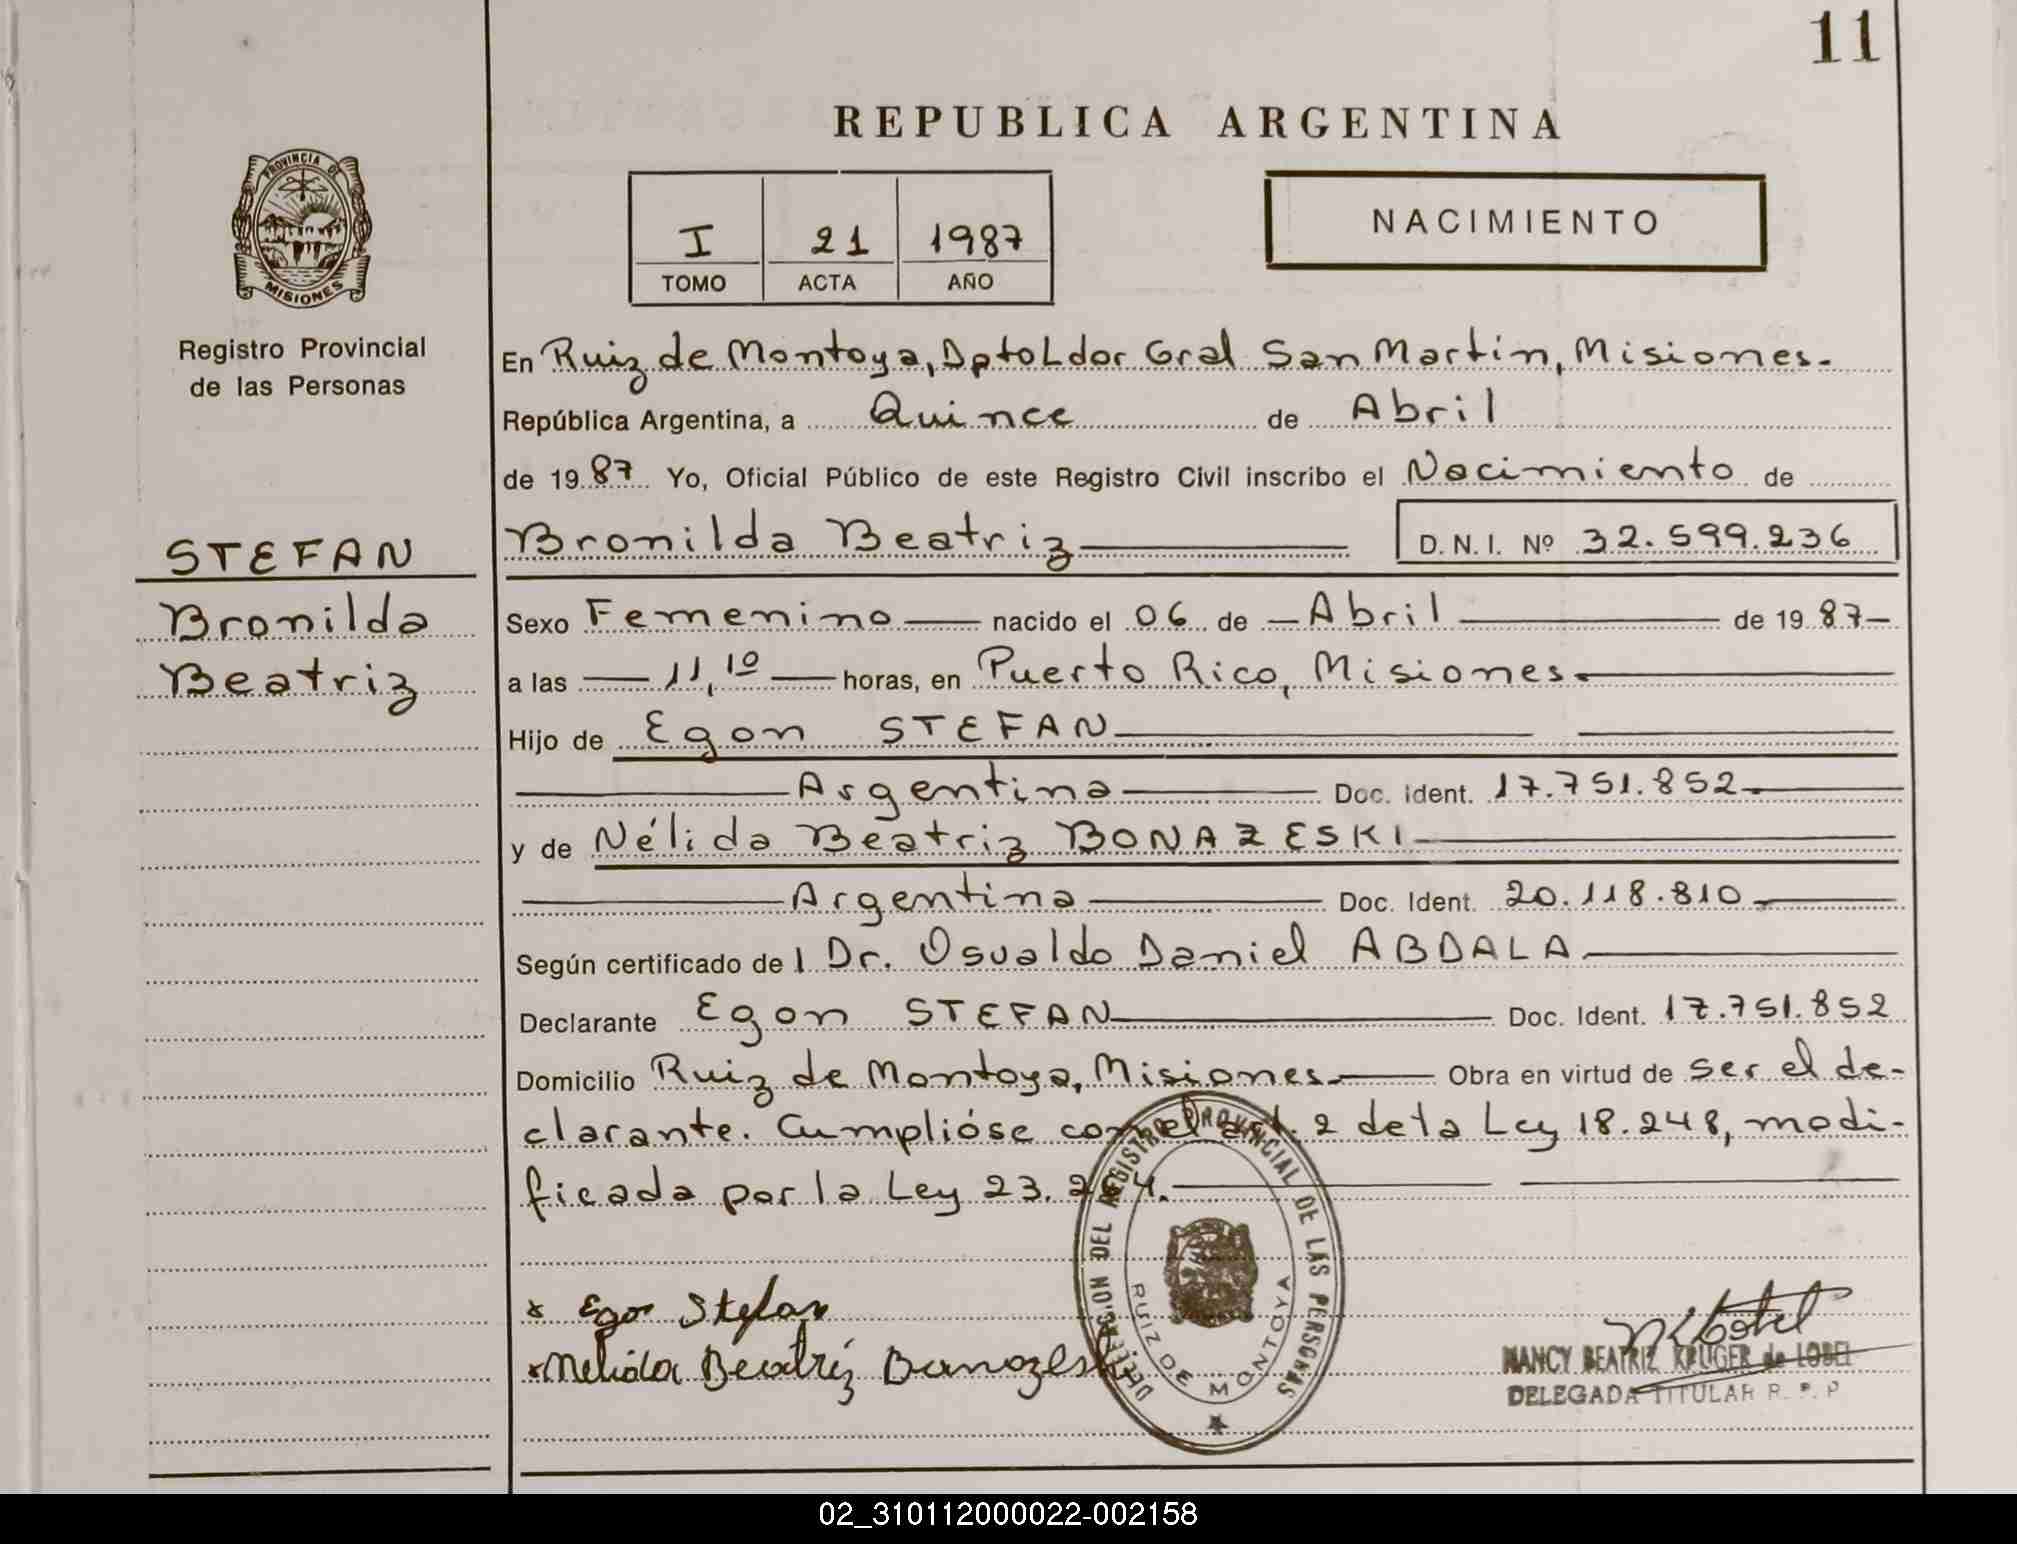 11
REPUBLICA ARGENTINA
PROVINCIA DE
MISIONES
Registro Provincial
de las Personas
I 21 1987
TOMO ACTA AÑO
NACIMIENTO
En Ruiz de Montoya, Dpto Ldor Gral San Martín, Misiones.
República Argentina, a Quince de Abril
de 1987 Yo, Oficial Público de este Registro Civil inscribo el Nacimiento de
STEFAN
Bronilda
Beatriz
Bronilda Beatriz D.N.I. Nº 32.599.236
Sexo Femenino nacido el 06 de Abril de 1987
a las 11,10 horas, en Puerto Rico, Misiones.
Hijo de Egon STEFAN
Argentina Doc. Ident. 17.751.852
y de Nélida Beatriz BONAZESKI
Argentina Doc. Ident. 20.118.810
Según certificado del Dr. Osvaldo Daniel ABDALA
Declarante Egon STEFAN Doc. Ident. 17.751.852
Domicilio Ruiz de Montoya, Misiones. Obra en virtud de ser el de-
clarante. Cumplióse con el art. 2 de la Ley 18.248, modi-
ficada por la Ley 23.264.
x Egon Stefan
x Nelida Beatriz
DELEGACION DEL REGISTRO PROVINCIAL DE LAS PERSONAS
RUIZ DE MONTOYA
NANCY BEATRIZ KRUGER de LOBEL
DELEGADA TITULAR R. P. P
02_310112000022-002158